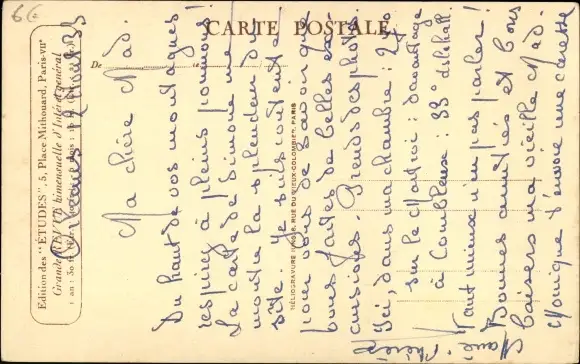 6€
CARTE POSTALE
De
Edition des "ÉTUDES", 5, Place Mithouard, Paris-VIIᵉ
Grande REVUE bimensuelle d'Intérêt général
HÉLIOGRAVURE RUE DU VIEUX-COLOMBIER, PARIS
Ma chère Mad.
Du haut de vos montagnes
respirez à pleins poumons!
La carte de Simone me
montre la splendeur du
site. Je suis contente
pour vous de savoir que
vous faites de belles ex-
cursions. Prends des photos.
Ici, dans ma chambre : 27°
sur le : davantage
à Combleux : 33° de le hall.
Vaut mieux n'en pas parler!
Bonnes amitiés et bons
baisers ma vieille Mad.
Monique t'envoie une caresse